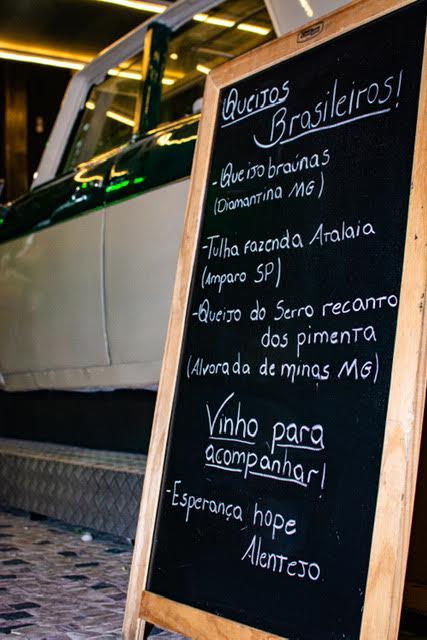 Queijos
Brasileiros!
-Queijo braúnas
(Diamantina MG)
-Tulha fazenda Atalaia
(Amparo SP)
-Queijo do Serro recanto
dos pimenta
(Alvorada de minas MG)
Vinho para
acompanhar!
-Esperança hope
Alentejo